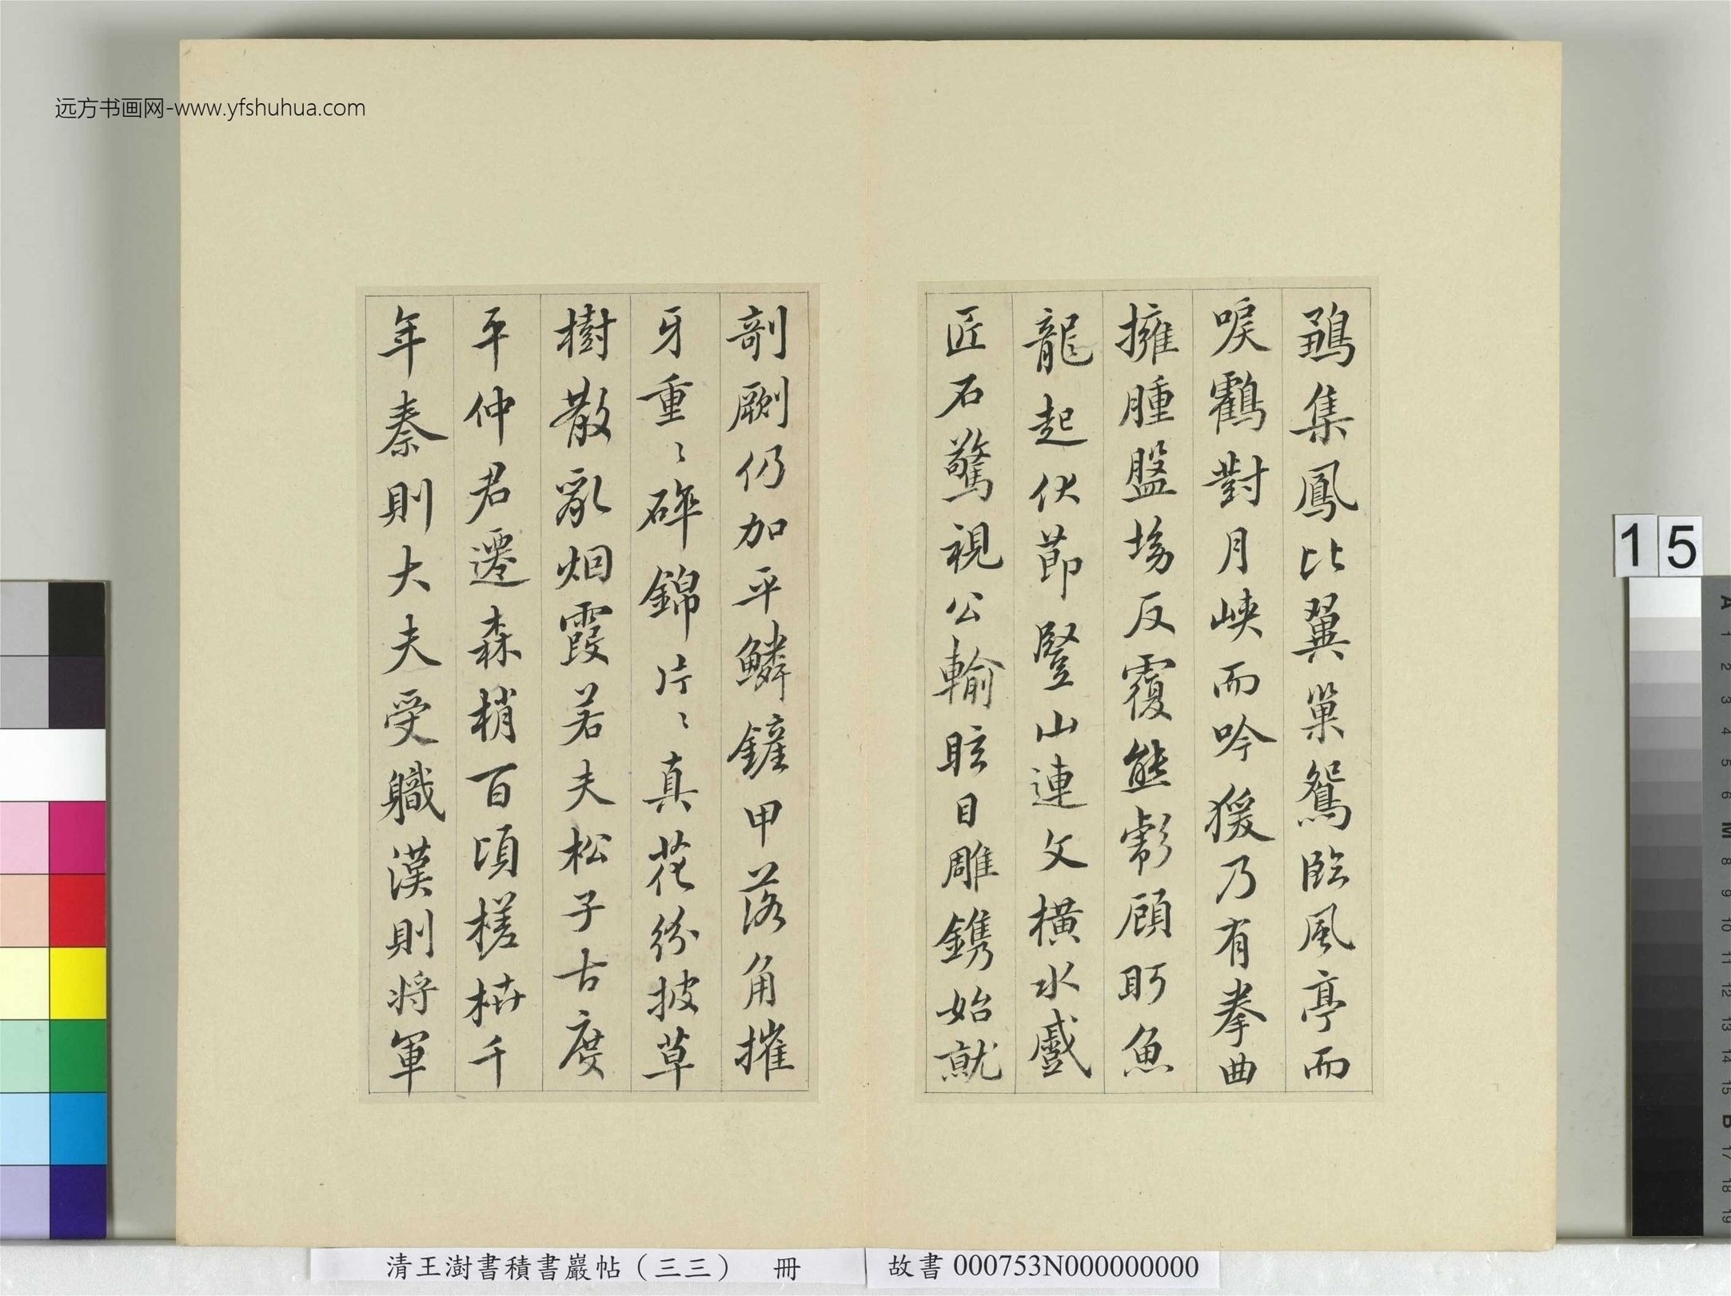 远方书画网-www.yfshuhua.com
鶵集鳳比翼巢鴛臨風亭而
唳鸖對月峽而吟猨乃有拳曲
擁腫盤坳反覆熊彪顧盻魚
龍起伏節豎山連文橫水蹙
匠石驚視公輸眩目雕鐫始就
剞劂仍加平鱗鏟甲落角摧
牙重〻碎錦片〻真花紛披草
樹散亂烟霞若夫松子古度
平仲君遷森梢百頃槎枿千
年秦則大夫受職漢則將軍
15
清王澍書積書巖帖（三三） 冊
故書 000753N000000000